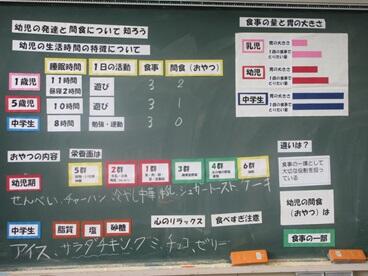 幼児の発達と間食について 知ろう
幼児の生活時間の特徴について
睡眠時間 1日の活動 食事 間食(おやつ)
1歳児 11時間 昼寝2時間 遊び 3 2
5歳児 10時間 遊び 3 1
中学生 8時間 勉強・運動 3 0
食事の量と胃の大きさ
乳児 胃の大きさ
1回の食事でとりたい量
幼児 胃の大きさ
1回の食事でとりたい量
中学生 胃の大きさ
1回の食事でとりたい量
おやつの内容 栄養画は
5群 2群 1群 3群 4群 6群
幼児期
せんべい、チャーハン 冷やし中華 シュガートースト ケーキ
違いは?
食事の一環として
大切な役割を担っている
幼児の間食
(おやつ)は
食事の一部
心のリラックス 食べすぎ注意
中学生 脂質 塩 砂糖
アイス、サラダチキン、グミ、チョコ、ゼリー